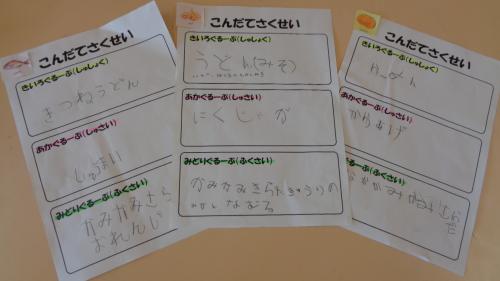 こんだてさくせい
きいろぐるーぷ(しゅしょく)
きつねうどん
あかぐるーぷ(しゅさい)
しゅうまい
みどりぐるーぷ(ふくさい)
かみかみさら
おれんじ
こんだてさくせい
きいろぐるーぷ(しゅしょく)
うどん(みそ)
あかぐるーぷ(しゅさい)
にくじゃが
みどりぐるーぷ(ふくさい)
かみかみきらんきゅうりの
なむる
こんだてさくせい
きいろぐるーぷ(しゅしょく)
あかぐるーぷ(しゅさい)
からあげ
みどりぐるーぷ(ふくさい)